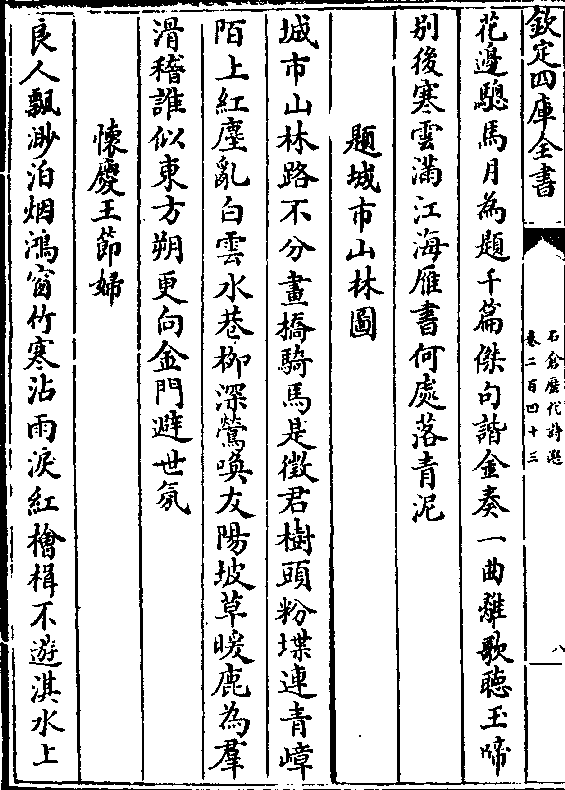 欽定四庫全書
石倉歷代詩選
卷二百四十三
八
花邊驄馬月為題千篇傑句諧金奏一曲離歌聴玉啼
别後寒雲滿江海雁書何處落青泥
題城市山林圖
城市山林路不分畫橋騎馬是徵君樹頭粉堞連青嶂
陌上紅塵亂白雲水巷柳深鶯喚友陽坡草暖鹿為羣
滑稽誰似東方朔更向金門避世氛
懷慶王節婦
良人飄渺泊烟鴻窗竹寒沾雨淚紅檜楫不遊淇水上